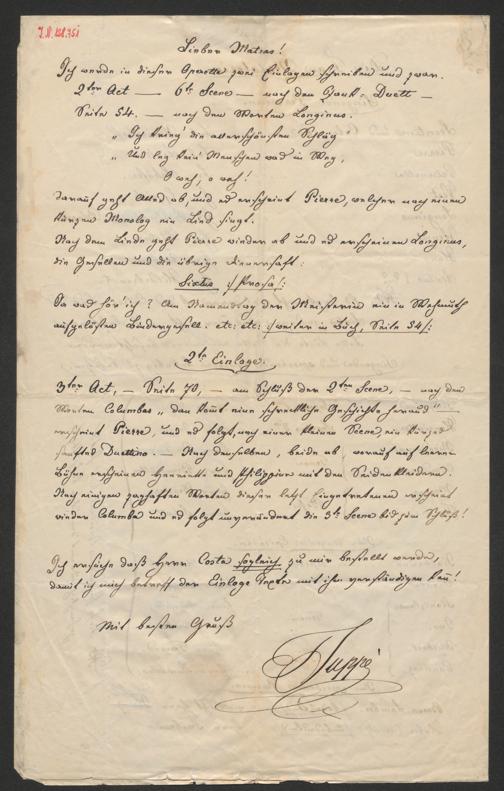 I.N. 131.751
Lieber Matras!
Ich werde in dieser Operette zwei Einlagen schreiben und zwar.
2ter Act — 6te Scene — nach dem Zank-Duett —
Seite 54. — nach den Worten Longinus.
„ Ich krieg' die allerschönsten Schläg
„ Und leg kein' Menschen was in Weg,
O weh, o weh!
darauf geht Alles ab, und es erscheint Pierre, welcher nach einem
kurzen Monolog ein Lied singt.
Nach dem Liede geht Pierre wieder ab und es erscheinen Longinus,
die Gesellen und die übrige Dienerschaft:
Sixtus /: Prosa :/
Ja was hör' ich? Am Namenstag der Meisterin ein in Wehmuth
aufgelösten Bindergesell. etc: etc: /: weiter im Buch, Seite 54 /:
2te Einlage.
3ter Act, — Seite 70, — am Schluß der 2ten Scene, — nach den
Worten Columbas „ dan komt eine schreckliche Geschichte heraus"
erscheint Pierre, und es folgt, nach einer kleinen Scene, ein kurzes
sanftes Duettino. — Nach demselben, beide ab, worauf auf leerer
Bühne erscheinen Henriette und Philippine mit den Seidenkleidern.
Nach einigen zaghaften Worten dieser letzt Eingetretenen erscheint
wieder Columba und es folgt unverändert die 3te Scene bis zum Schluß!
Ich ersuche daß Herr Costa sogleich zu mir bestellt werde,
damit ich mich betreff der Einlage Texte mit ihm verständigen kan!
Mit besten Gruß
Suppé